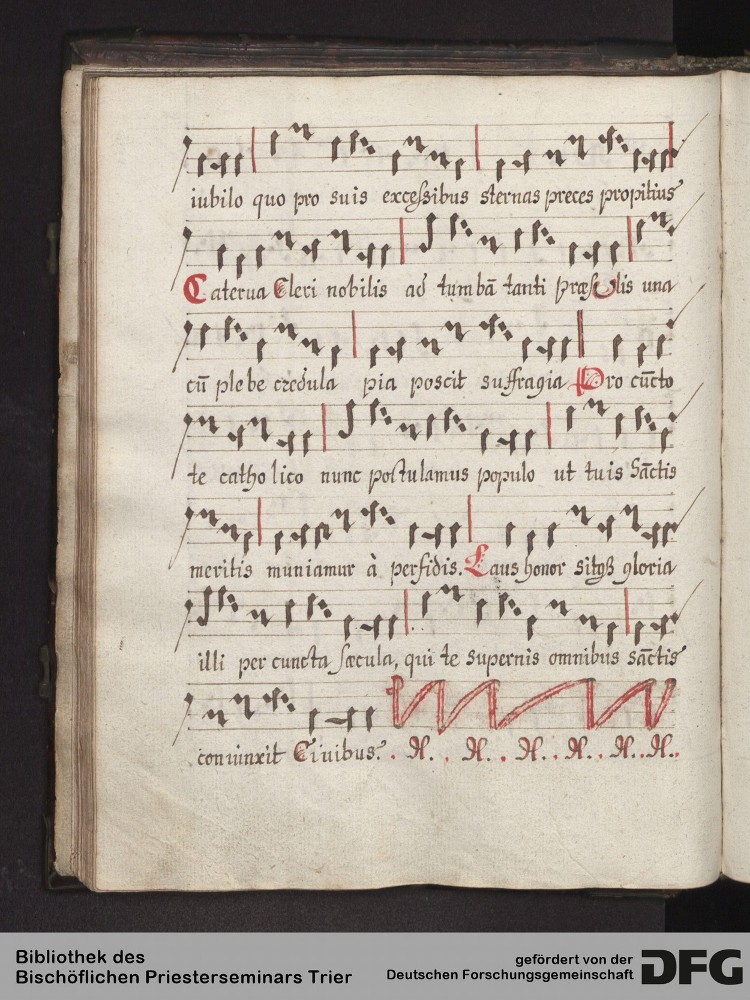 iubilo quo pro suis excessibus sternas preces propitius
Caterua Cleri nobilis ad tumbā tanti præsulis una
cū plebe credula pia poscit suffragia Pro cūcto
te catholico nunc postulamus populo ut tuis Sāctis
meritis muniamur à perfidis. Laus honor sitqз gloria
illi per cuncta sæcula, qui te supernis omnibus sāctis
coniunxit Ciuibus.
Bibliothek des
Bischöflichen Priesterseminars Trier
gefördert von der
Deutschen Forschungsgemeinschaft
DFG